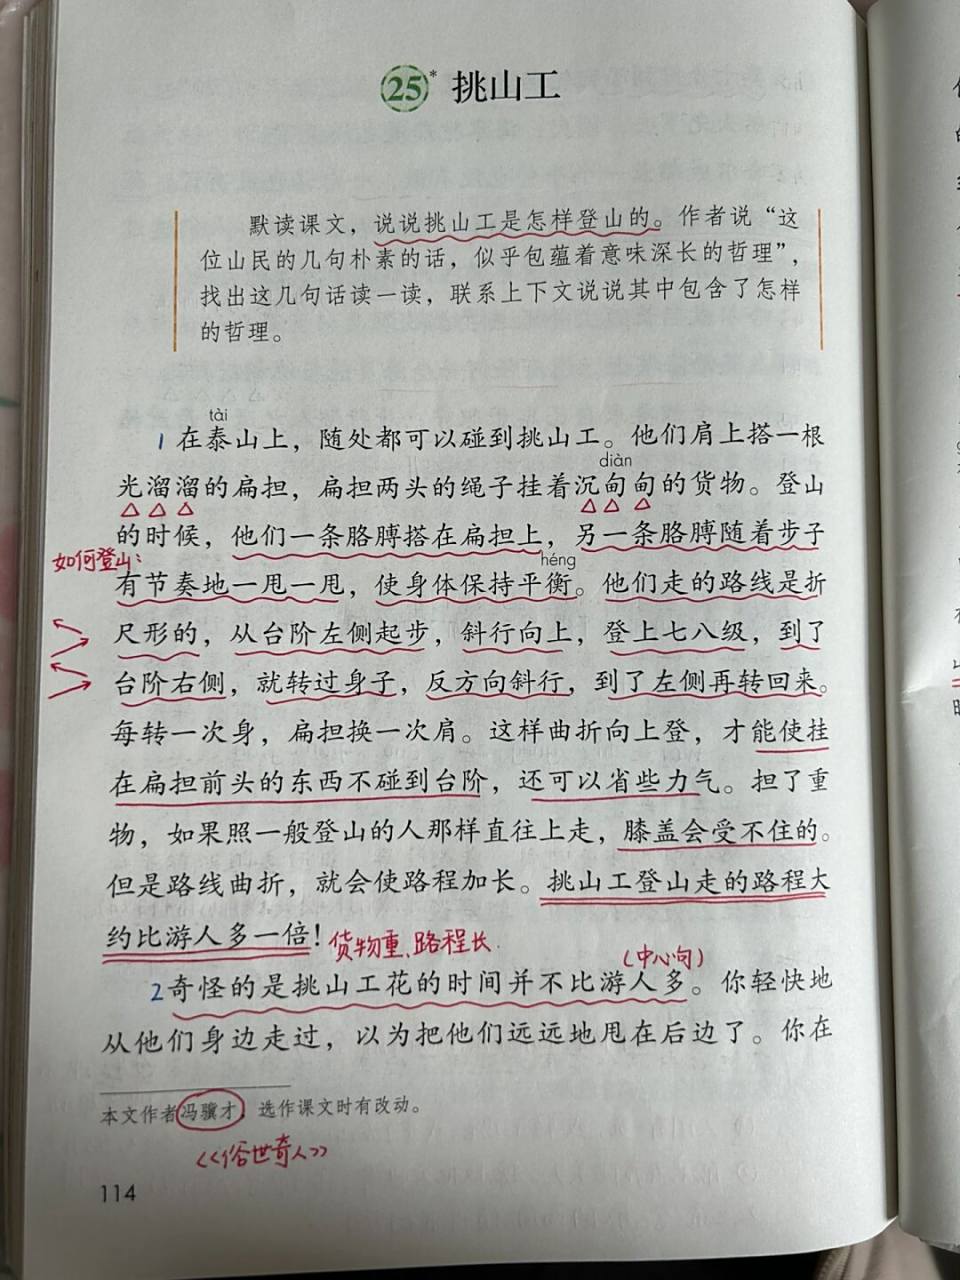 25* 挑山工
默读课文，说说挑山工是怎样登山的。作者说“这
位山民的几句朴素的话，似乎包蕴着意味深长的哲理”，
找出这几句话读一读，联系上下文说说其中包含了怎样
的哲理。
tài
1 在泰山上，随处都可以碰到挑山工。他们肩上搭一根
diàn
光溜溜的扁担，扁担两头的绳子挂着沉甸甸的货物。登山
的时候，他们一条胳膊搭在扁担上，另一条胳膊随着步子
如何登山：
héng
有节奏地一甩一甩，使身体保持平衡。他们走的路线是折
尺形的，从台阶左侧起步，斜行向上，登上七八级，到了
台阶右侧，就转过身子，反方向斜行，到了左侧再转回来。
每转一次身，扁担换一次肩。这样曲折向上登，才能使挂
在扁担前头的东西不碰到台阶，还可以省些力气。担了重
物，如果照一般登山的人那样直往上走，膝盖会受不住的。
但是路线曲折，就会使路程加长。挑山工登山走的路程大
约比游人多一倍！货物重、路程长
(中心句)
2 奇怪的是挑山工花的时间并不比游人多。你轻快地
从他们身边走过，以为把他们远远地甩在后边了。你在
本文作者冯骥才，选作课文时有改动。
《俗世奇人》
114